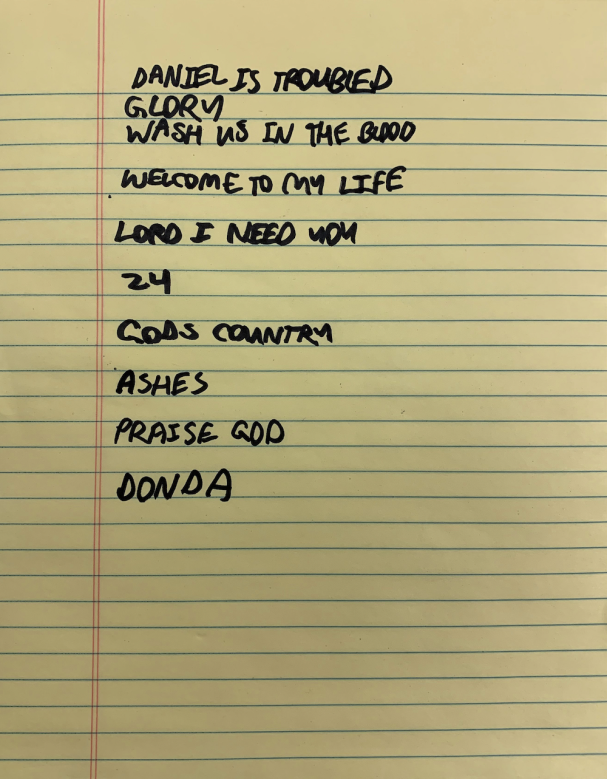 DANIEL IS TROUBLED
GLORY
WASH US IN THE BLOOD
WELCOME TO MY LIFE
LORD I NEED YOU
24
GODS COUNTRY
ASHES
PRAISE GOD
DONDA